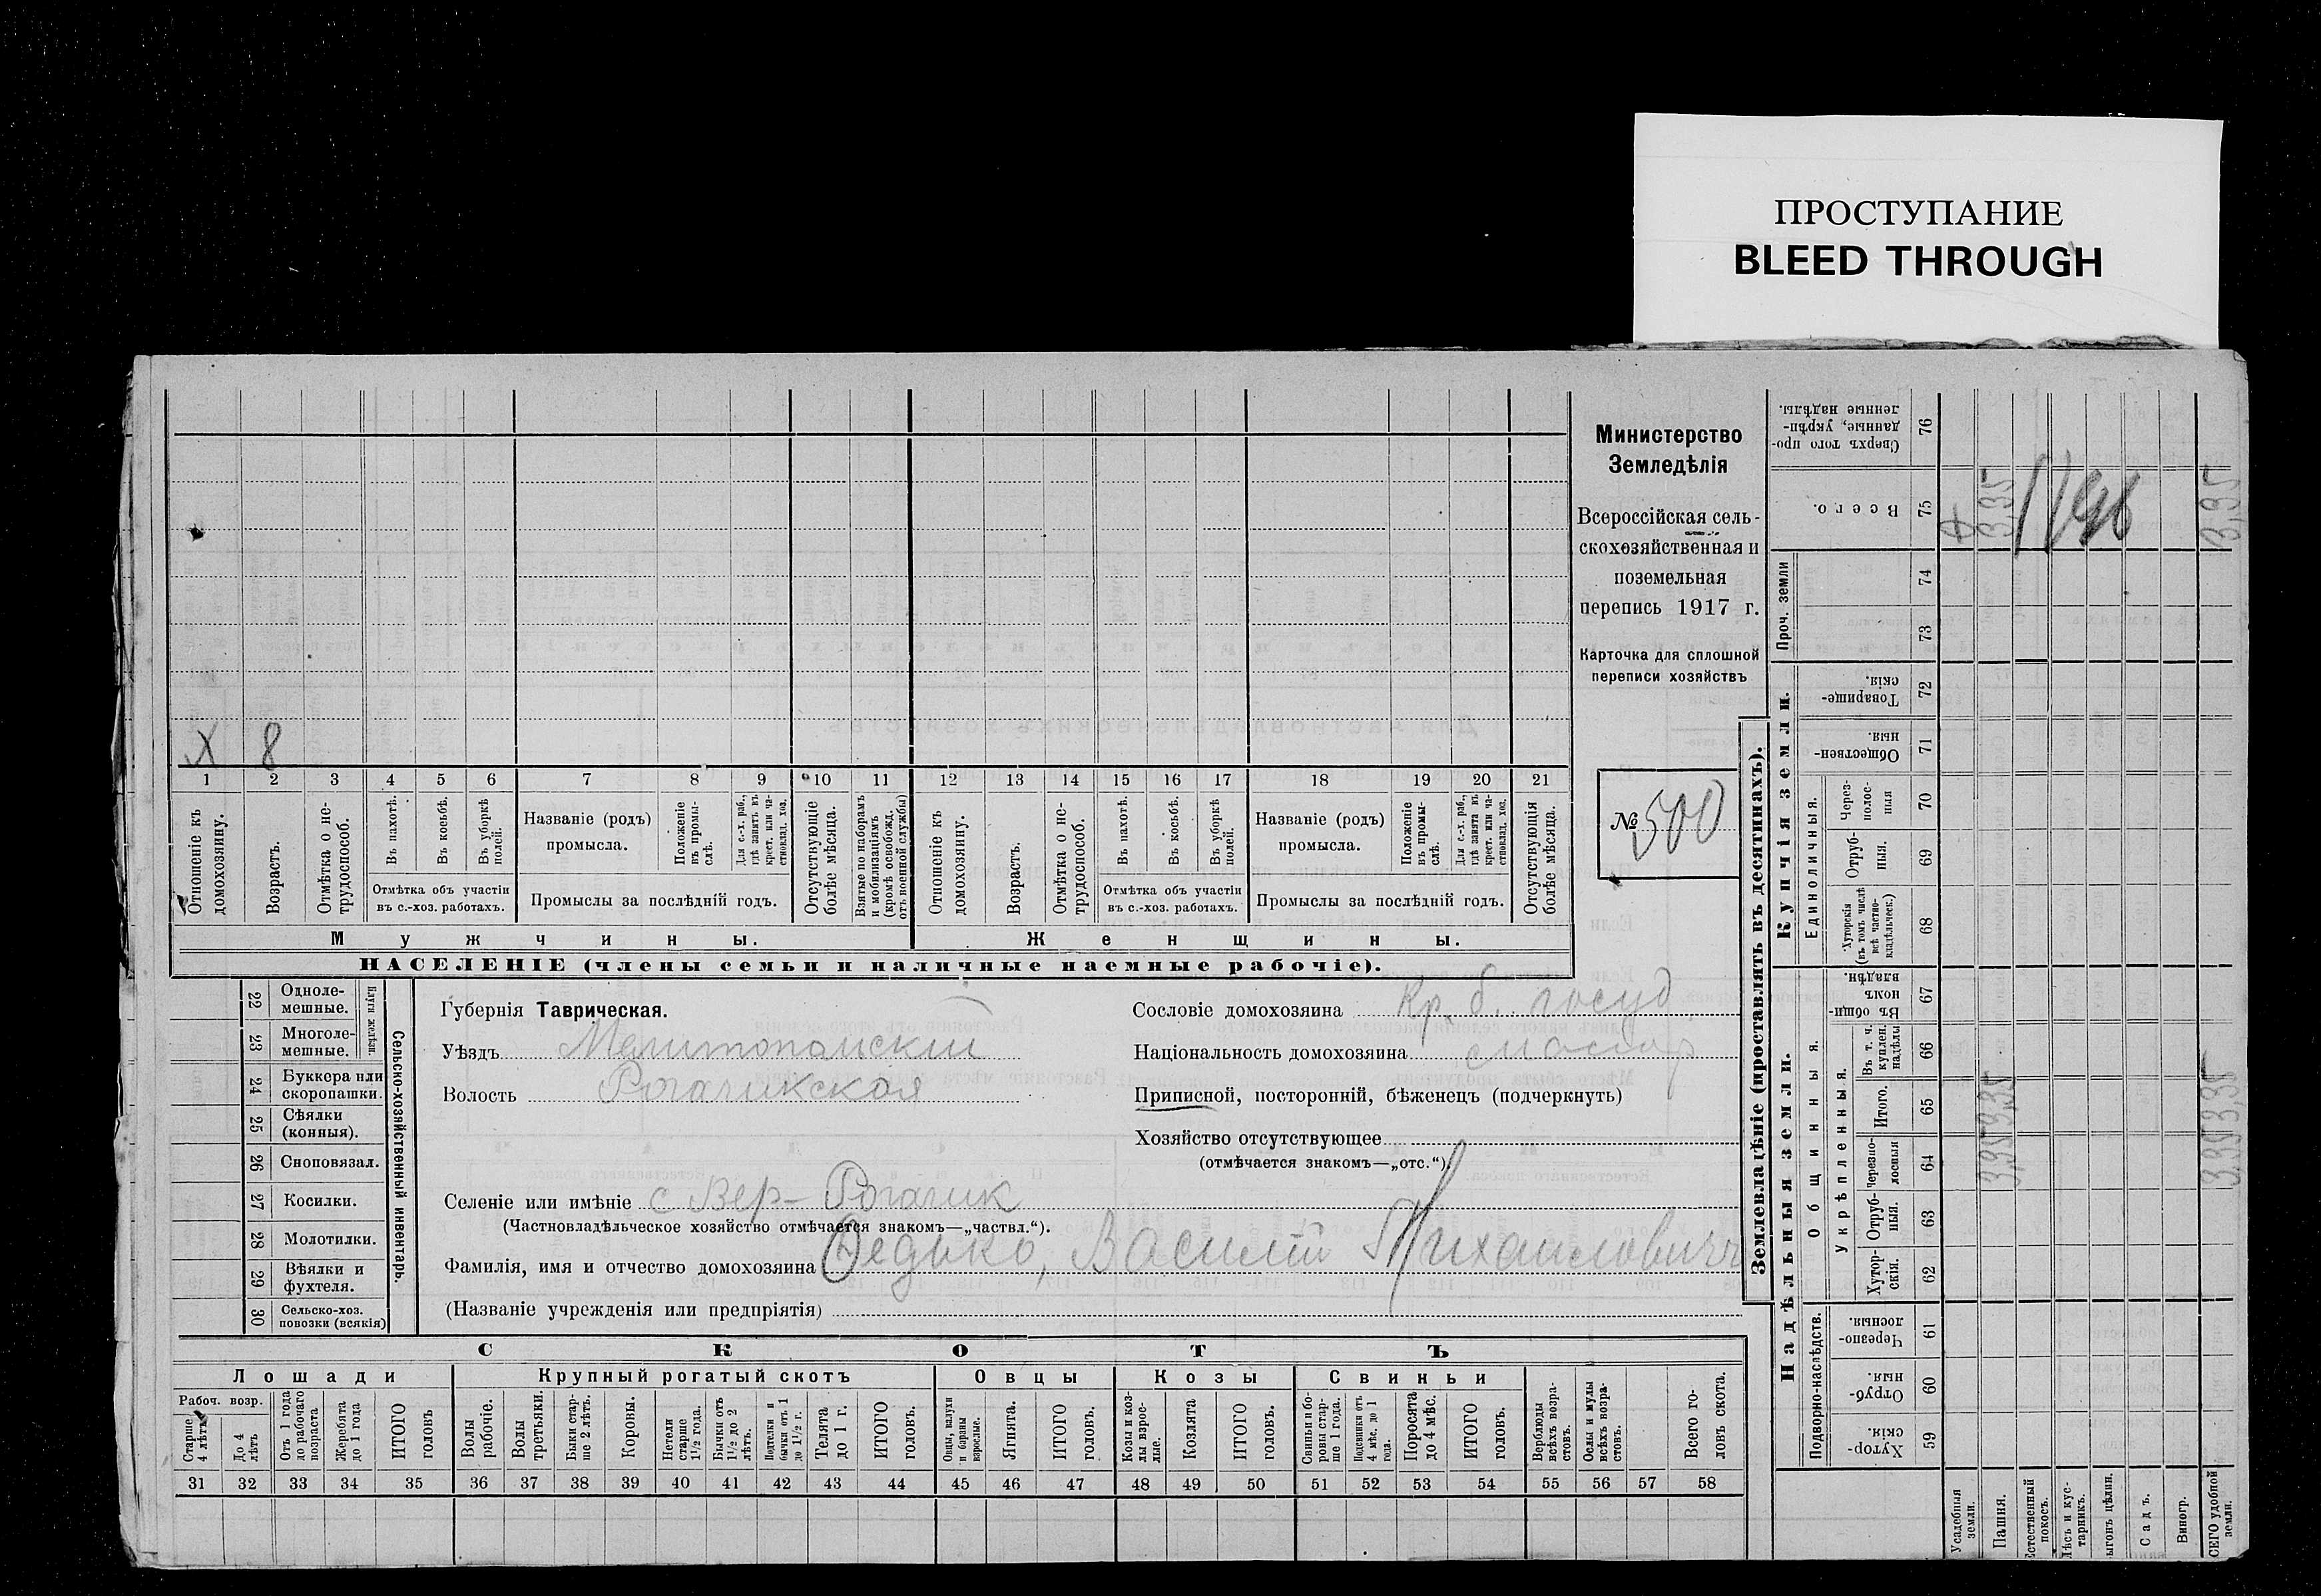 ПРОСТУПАНИЕ
BLEED THROUGH
Министерство
Земледѣлія
Всероссійская сель-
скохозяйственная и
поземельная
перепись 1917 г.
Карточка для сплошной
переписи хозяйствъ
№ 500
X 8
1 2 3 4 5 6 7 8 9 10 11 12 13 14 15 16 17 18 19 20 21
Отношеніе къ
домохозяину.
Возрастъ.
Отмѣтка о не-
трудоспособ.
Въ пахотѣ.
Въ косьбѣ.
Въ уборкѣ
полей.
Отмѣтка объ участіи
въ с.-хоз. работахъ.
Названіе (родъ)
промысла.
Положеніе
въ промы-
слѣ.
Для с.-х. раб.,
гдѣ занятъ въ
крест. или ча-
стновлад. хоз.
Промыслы за послѣдній годъ.
Отсутствующіе
болѣе мѣсяца.
Взятые по наборамъ
и мобилизаціямъ
(кромѣ освобожд.
отъ военной службы)
Отношеніе къ
домохозяину.
Возрастъ.
Отмѣтка о не-
трудоспособ.
Въ пахотѣ.
Въ косьбѣ.
Въ уборкѣ
полей.
Отмѣтка объ участіи
въ с.-хоз. работахъ.
Названіе (родъ)
промысла.
Положеніе
въ промы-
слѣ.
Для с.-х. раб.,
гдѣ занята въ
крест. или ча-
стновлад. хоз.
Промыслы за послѣдній годъ.
Отсутствующія
болѣе мѣсяца.
Мужчины.
Женщины.
НАСЕЛЕНІЕ (члены семьи и наличные наемные рабочіе).
22 Одноле-
мешные.
23 Многоле-
мешные.
Плуги желѣзн.
24 Буккера или
скоропашки.
25 Сѣялки
(конныя).
26 Сноповязал.
27 Косилки.
28 Молотилки.
29 Вѣялки и
фухтеля.
30 Сельско-хоз.
повозки (всякія)
Сельско-хозяйственный инвентарь.
Губернія Таврическая.
Уѣздъ Мелитопольскій
Волость Рогачикская
Сословіе домохозяина кр. б. госуд
Національность домохозяина
Приписной, посторонній, бѣженецъ (подчеркнуть)
Хозяйство отсутствующее
(отмѣчается знакомъ—„отс.“).
Селеніе или имѣніе с Вер-Рогачик
(Частновладѣльческое хозяйство отмѣчается знакомъ—„частвл.“).
Фамилія, имя и отчество домохозяина Федько, Василій Михайлович
(Названіе учрежденія или предпріятія)
СКОТЪ
Лошади
Крупный рогатый скотъ
Овцы
Козы
Свиньи
Рабоч. возр.
Старше
4 лѣтъ
До 4
лѣтъ
Отъ 1 года
до рабочаго
возраста
Жеребята
до 1 года
ИТОГО
головъ
Волы
рабочіе.
Волы
третьяки.
Быки стар-
ше 2 лѣтъ.
Коровы.
Нетели
старше
1½ года.
Бычки отъ
1½ до 2
лѣтъ.
Подтелки и
бычки отъ 1
до 1½ г.
Телята
до 1 г.
ИТОГО
головъ.
Овцы, валухи
и бараны
взрослые.
Ягнята.
ИТОГО
головъ.
Козы и коз-
лы взрос-
лые.
Козлята
ИТОГО
головъ.
Свиньи и бо-
ровы стар-
ше 1 года.
Подсвинки отъ
4 мѣс. до 1
года.
Поросята
до 4 мѣс.
ИТОГО
головъ.
Верблюды
всѣхъ возра-
стовъ.
Ослы и мулы
всѣхъ возра-
стовъ.
Всего го-
ловъ скота.
31 32 33 34 35 36 37 38 39 40 41 42 43 44 45 46 47 48 49 50 51 52 53 54 55 56 57 58
Землевладѣніе (проставлять въ десятинахъ).
Надѣльныя земли.
Купчія земли.
Проч. земли
Подворно-наслѣдств.
Общинныя.
Укрѣпленныя.
Единоличныя.
Сверхъ того про-
данные, укрѣп-
ленные надѣлы.
76
Всего.
75
74
73
Товарище-
скія.
72
Обществен-
ныя.
71
Через-
полос-
ныя
70
Отруб-
ныя.
69
Хуторскія
(въ томъ числѣ
всѣ частно-
владѣльческ.)
68
Въ общи-
номъ
владѣн.
67
Въ т. ч.
куплен.
надѣлы
66
Итого.
65
Черезпо-
лосныя
64
Отруб-
ныя.
63
Хутор-
скія.
62
Черезпо-
лосныя.
61
Отруб-
ныя.
60
Хутор-
скія.
59
3,35
3,35
3,35 3,35
3,35 3,35
Усадебныя
земли.
Пашня.
Естественный
покосъ.
Лѣсъ и кус-
тарникъ.
ыгонъ цѣлин.
Садъ.
Виногр.
СЕГО удобной
земли.